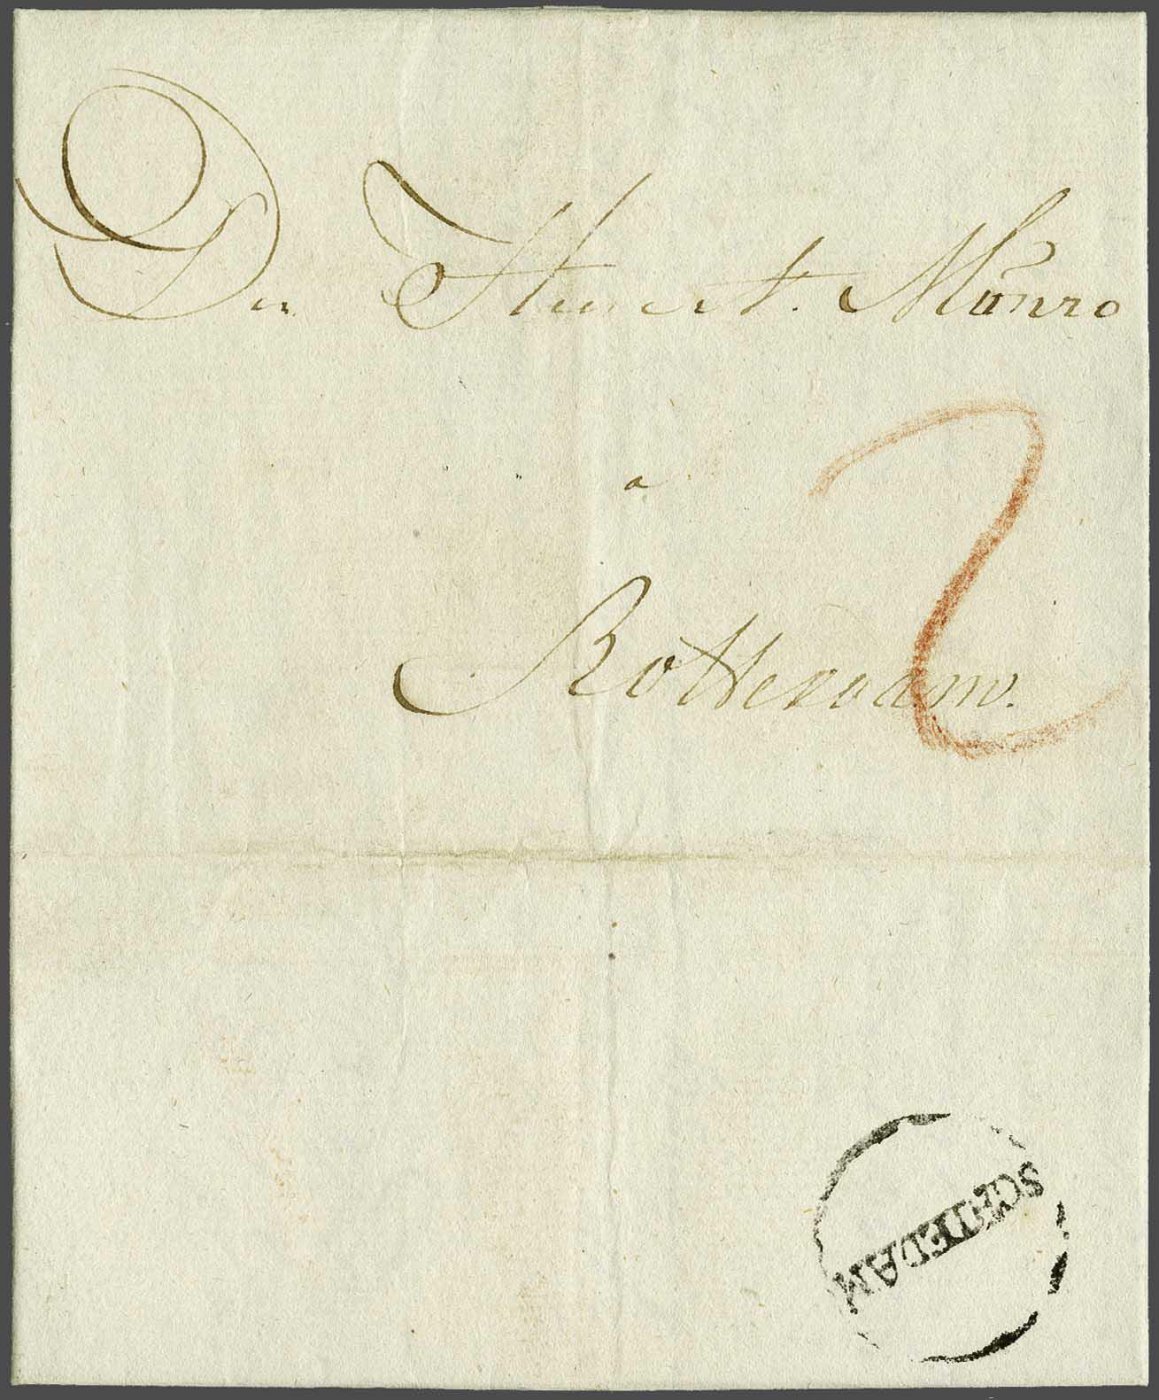 Den Heer T. Monro
a
Rotterdam.
2
SCHIEDAM